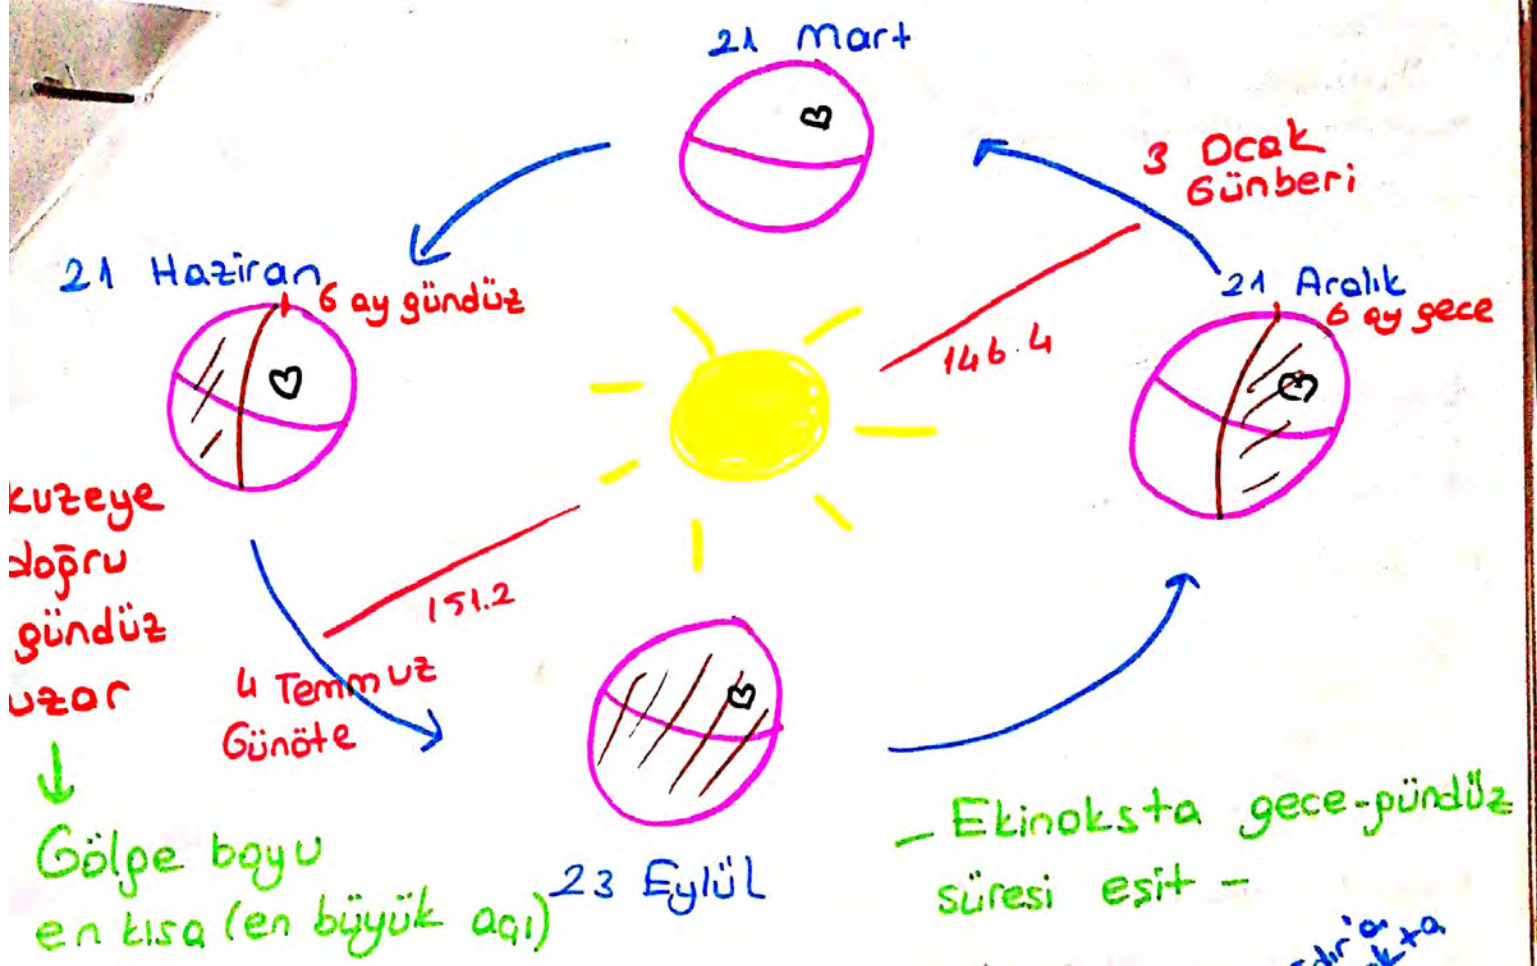 21 Mart
3 Ocak
Günberi
21 Haziran
6 ay gündüz
21 Aralık
6 ay gece
146.4
kuzeye
doğru
gündüz
uzar
151.2
4 Temmuz
Günöte
Gölge boyu
en kısa (en büyük açı)
23 Eylül
- Ekinoksta gece-gündüz
süresi eşit -